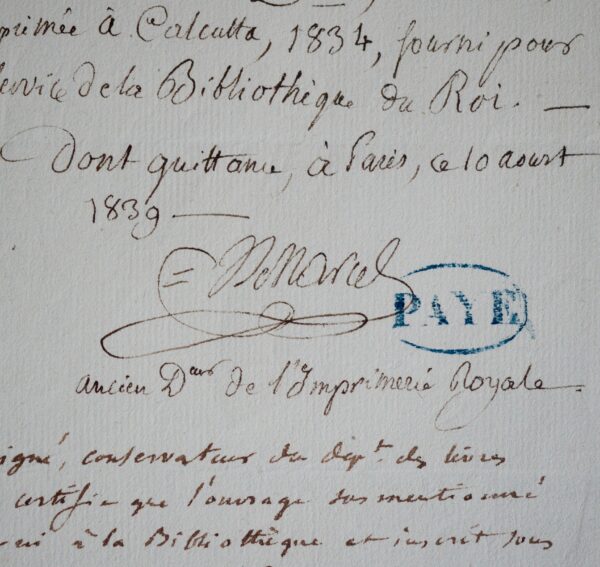 primée à Calcutta, 1834, fourni pour
service de la Bibliothèque du Roi. —
Dont quittance, à Paris, ce 10 aoust
1839 —
PAYE
ancien Deur de l'Imprimerie Royale
igné, conservateur du dépt. des livres
certifie que l'ouvrage sus mentionné
ni à la Bibliothèque et inscrit sous